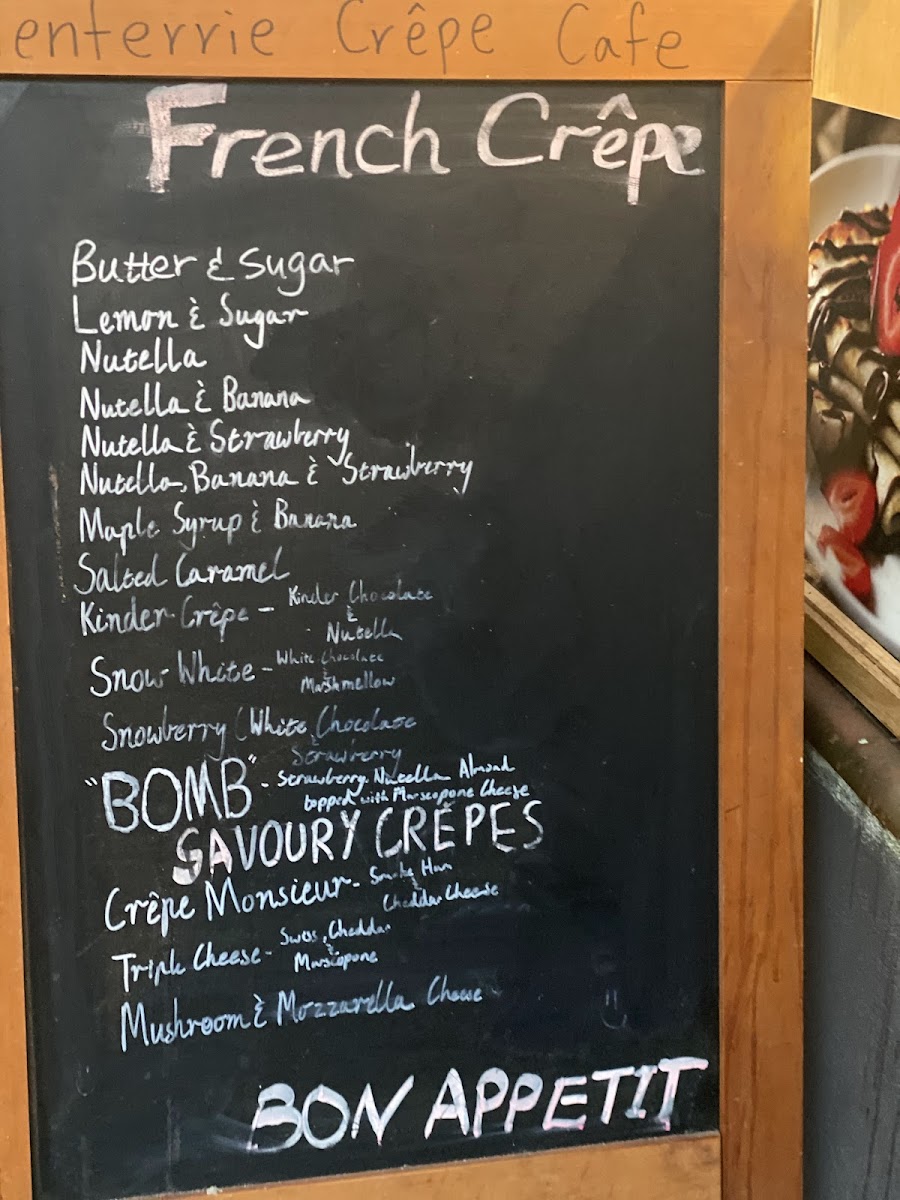 enterrie Crêpe Cafe
French Crêpe
Butter & Sugar
Lemon & Sugar
Nutella
Nutella & Banana
Nutella & Strawberry
Nutella, Banana & Strawberry
Maple Syrup & Banana
Salted Caramel
Kinder Crêpe - Kinder Chocolate
&
Nutella
Snow White - White Chocolate
&
Marshmellow
Snowberry (White Chocolate
&
Strawberry
"BOMB" - Strawberry Nutella Almond
topped with Marscopone Cheese
SAVOURY CRÊPES
Crêpe Monsieur - Smoke Ham
&
Cheddar Cheese
Triple Cheese - Swiss, Cheddar
&
Marscopone
Mushroom & Mozzarella Cheese
BON APPETIT